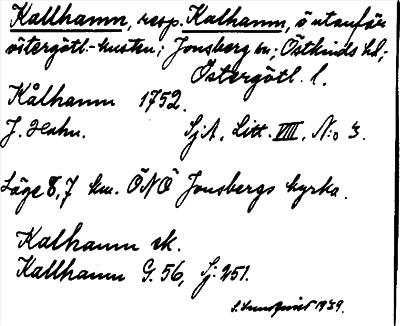 Kallhamn, resp. Kalhamn, ö utanför
östergötl.-kusten; Jonsberg sn; Östkinds hd;
Östergötl. l.
Kålhamn 1752.
J. Hahn. SjA, Litt. VIII, N:o 3.
Läge 8,7 km. ÖNÖ Jonsbergs kyrka.
Kalhamn sk.
Kallhamn G. 56, Sj: 251.
S. Lundqvist 1939.